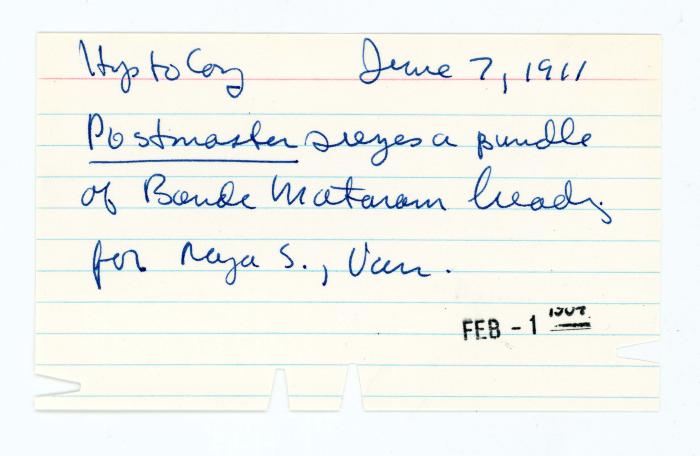 Hop to Cory June 7, 1911
Postmaster siezes a bundle
of Bande Mataram headg.
for Raja S., Van.
FEB - 1